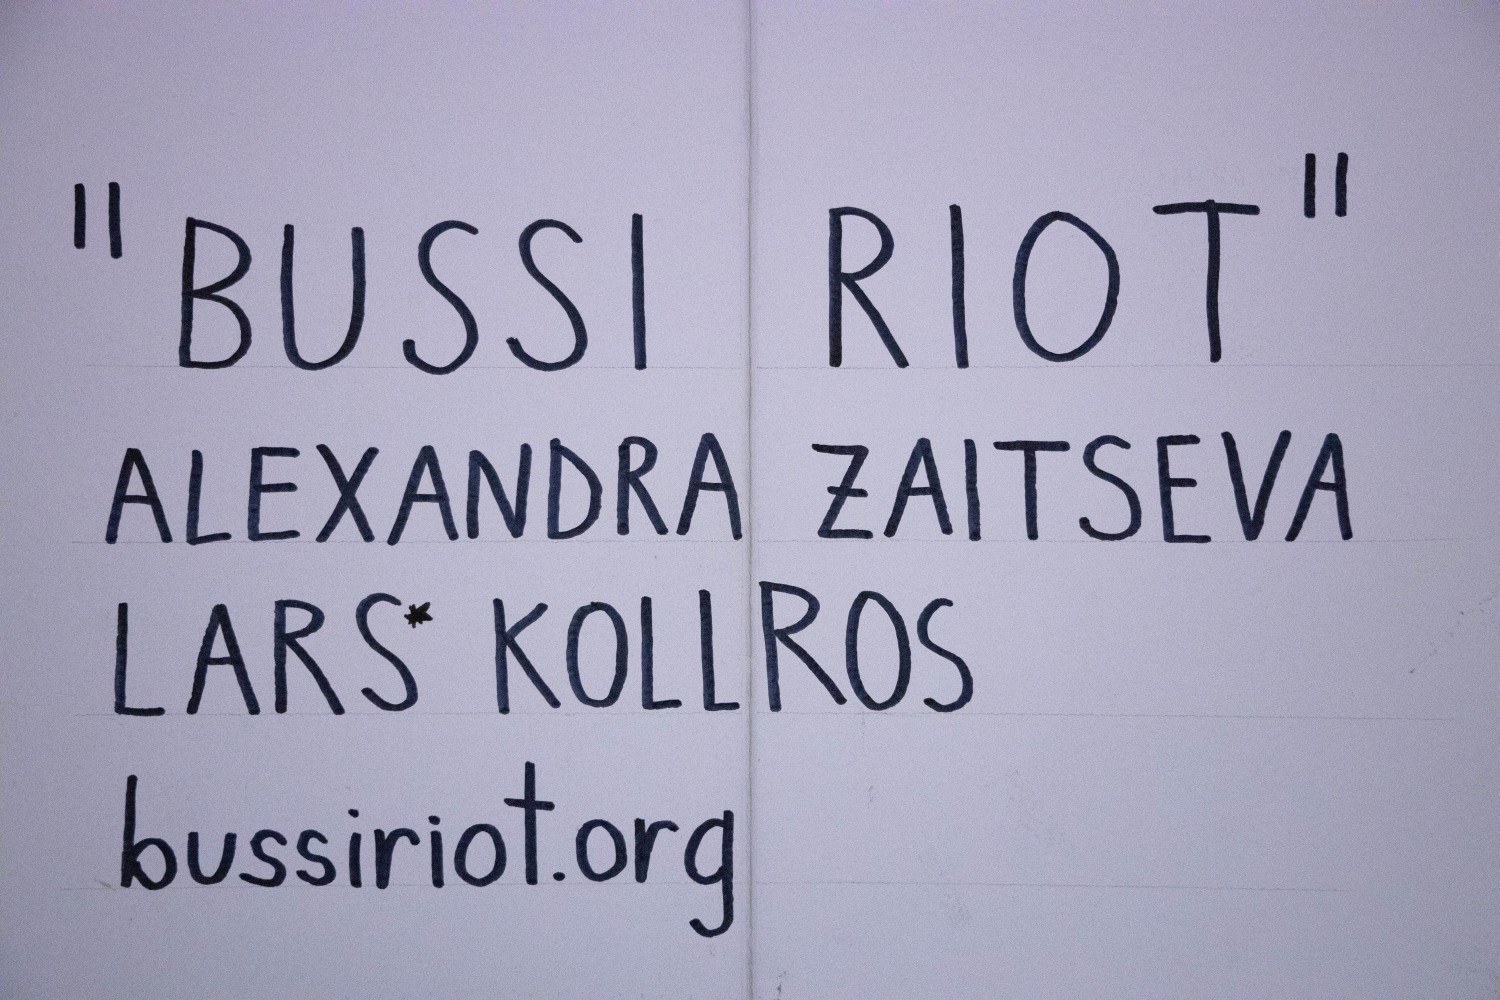 "BUSSI RIOT"
ALEXANDRA ZAITSEVA
LARS* KOLLROS
bussiriot.org